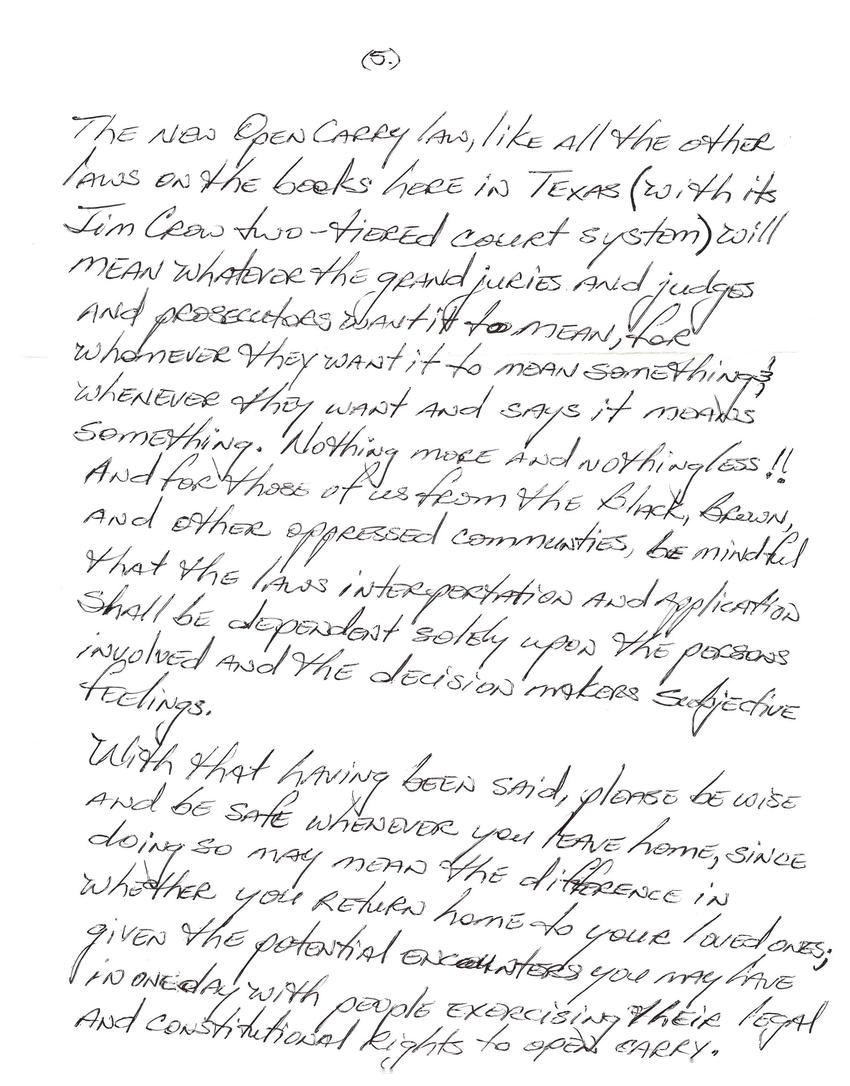 (5.)
The new Open Carry law, like all the other
laws on the books here in Texas (with its
Jim Crow two-tiered court system) will
mean whatever the grand juries and judges
and prosecutors want it to mean, for
whomever they want it to mean something;
whenever they want and says it means
something. Nothing more and nothing less!!
And for those of us from the Black, Brown,
and other oppressed communties, be mindful
that the laws interpertation and application
shall be dependent solely upon the persons
involved and the decision makers subjective
feelings.
With that having been said, please be wise
and be safe whenever you leave home, since
doing so may mean the difference in
whether you return home to your loved ones;
given the potential encounters you may have
in one day with people exercising their legal
and constitutional Rights to open carry.